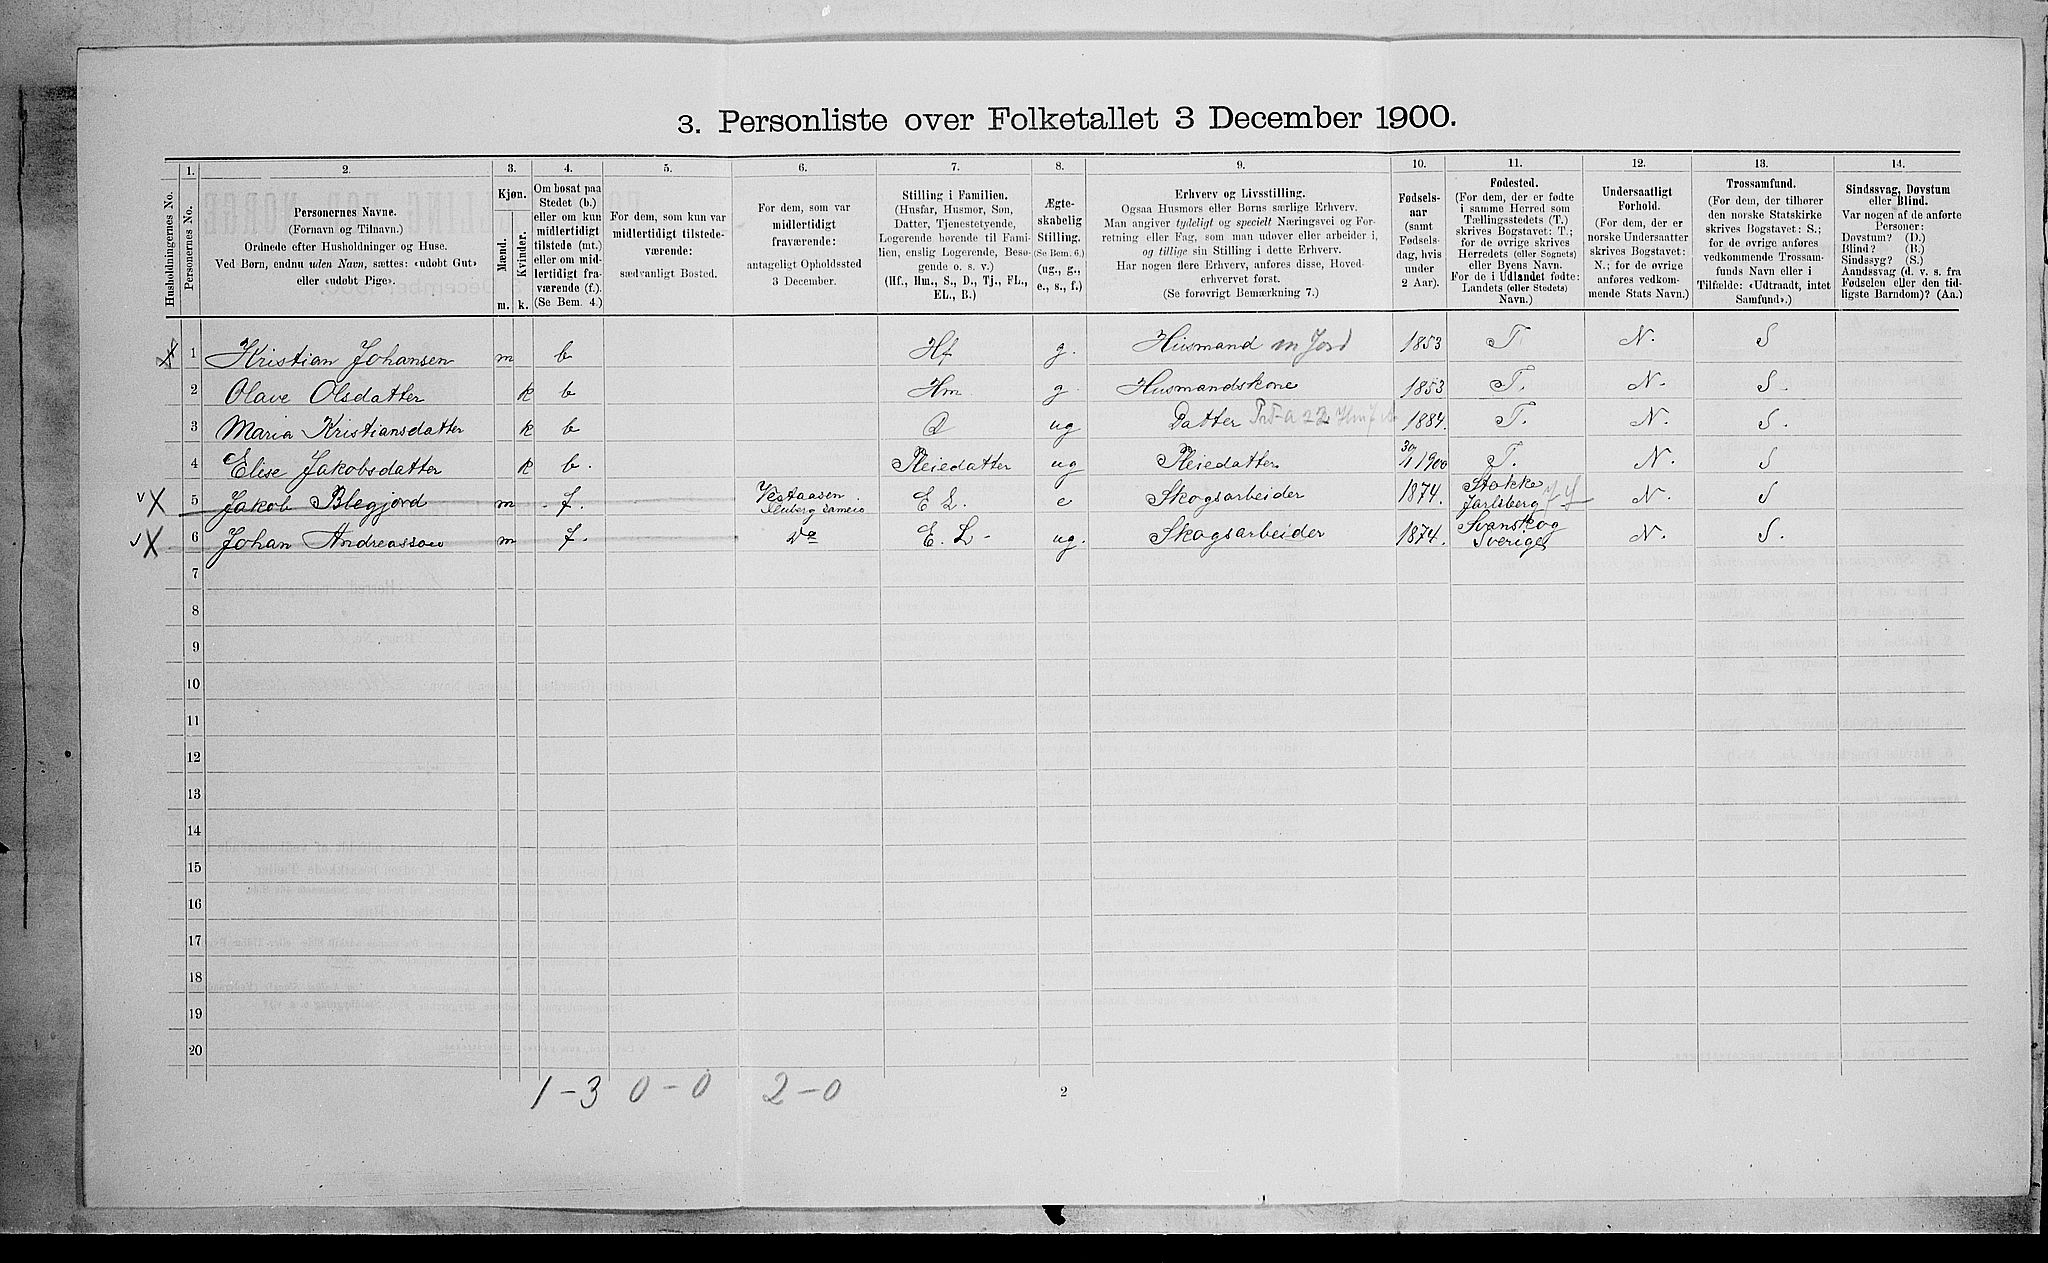 3. Personliste over Folketallet 3 December 1900.
Husholdningernes No.
1.
Personernes No.
2.
Personernes Navne.
(Fornavn og Tilnavn.)
Ordnede efter Husholdninger og Huse.
Ved Børn, endnu uden Navn, sættes: «udøbt Gut»
eller «udøbt Pige».
3.
Kjøn.
Mænd.
Kvinder.
m.
k.
4.
Om bosat paa
Stedet (b.)
eller om kun
midlertidigt
tilstede (mt.)
eller om mid-
lertidigt fra-
værende (f.)
(Se Bem. 4.)
5.
For dem, som kun var
midlertidigt tilstede-
værende:
sædvanligt Bosted.
6.
For dem, som var
midlertidigt
fraværende:
antageligt Opholdssted
3 December.
7.
Stilling i Familien.
(Husfar, Husmor, Søn,
Datter, Tjenestetyende,
Logerende hørende til Fami-
lien, enslig Logerende, Besø-
gende o. s. v.)
(Hf., Hm., S., D., Tj., FL.,
EL., B.)
8.
Ægte-
skabelig
Stilling.
(Se Bem. 6.)
(ug., g.,
e., s., f.)
9.
Erhverv og Livsstilling.
Ogsaa Husmors eller Børns særlige Erhverv.
Man angiver tydeligt og specielt Næringsvei og For-
retning eller Fag, som man udøver eller arbeider i,
og tillige sin Stilling i dette Erhverv.
Har nogen flere Erhverv, anføres disse, Hoved-
erhvervet først.
(Se forøvrigt Bemærkning 7.)
10.
Fødsels-
aar
(samt
Fødsels-
dag, hvis
under
2 Aar).
11.
Fødested.
(For dem, der er fødte
i samme Herred som
Tællingsstedets (T.)
skrives Bogstavet: T.;
for de øvrige skrives
Herredets (eller Sognets)
eller Byens Navn.
For de i Udlandet fødte:
Landets (eller Stedets)
Navn.)
12.
Undersaatligt
Forhold.
(For dem, der er
norske Undersaatter
skrives Bogstavet:
N.; for de øvrige
anføres vedkom-
mende Stats Navn.)
13.
Trossamfund.
(For dem, der tilhører
den norske Statskirke
skrives Bogstavet: S.;
for de øvrige anføres
vedkommende Trossam-
funds Navn eller i
Tilfælde: «Udtraadt, intet
Samfund».)
14.
Sindssvag, Døvstum
eller Blind.
Var nogen af de anførte
Personer:
Døvstum? (D.)
Blind? (B.)
Sindssyg? (S.)
Aandssvag (d. v. s. fra
Fødselen eller den tid-
ligste Barndom)? (Aa.)
X 1 Kristian Johansen m b Hf g. Husmand m Jord 1853 T. N. S
2 Olave Olsdatter k b Hm. g Husmandskone 1853 T. N. S.
3 Maria Kristiansdatter k b D ug Datter 1884. T. N. S
4 Elise Jakobsdatter k b. Pleiedatter ug Pleiedatter 30/11 1900 T. N. S
v X 5 Jakob Blegjord m f. Vestaasen E L. e Skogsarbeider 1874. Stokke Jarlsberg N. S
v X 6 Johan Andreasson m f. Do E. L. ug. Skogsarbeider 1874. Svanskog Sverige N. S.
7
8
9
10
11
12
13
14
15
16
17
18
19
20
1 - 3 0 - 0 2 - 0
2